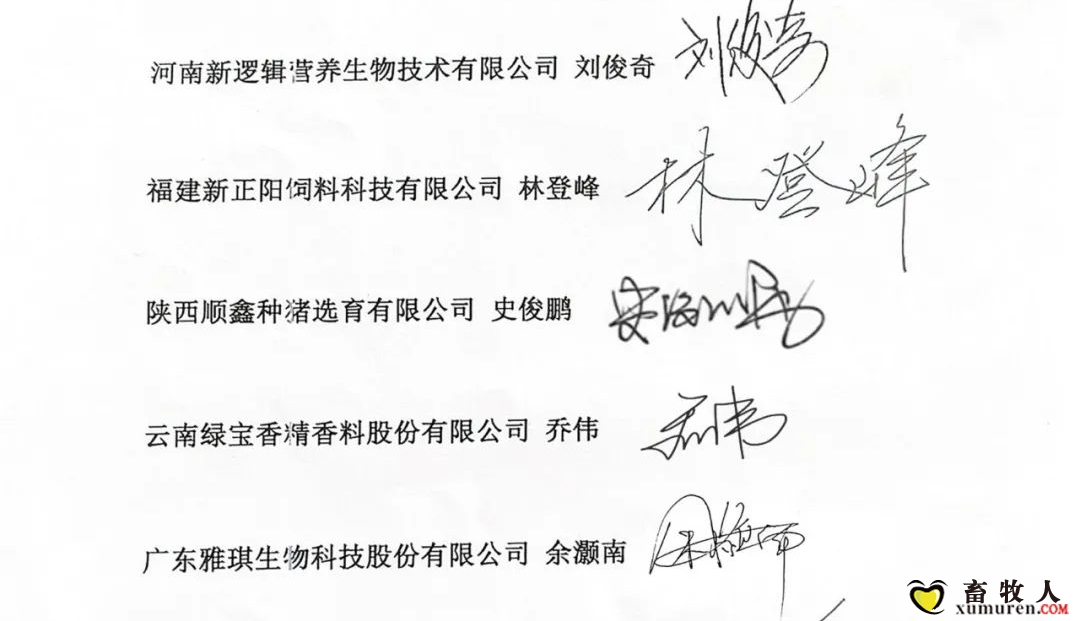 河南新逻辑营养生物技术有限公司 刘俊奇 刘俊奇
福建新正阳饲料科技有限公司 林登峰 林登峰
陕西顺鑫种猪选育有限公司 史俊鹏
云南绿宝香精香料股份有限公司 乔伟 乔伟
广东雅琪生物科技股份有限公司 余灏南
畜牧人
xumuren.COM